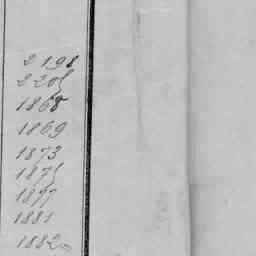 2198
2205
1868
1869
1873
1875
1877
1881
1882